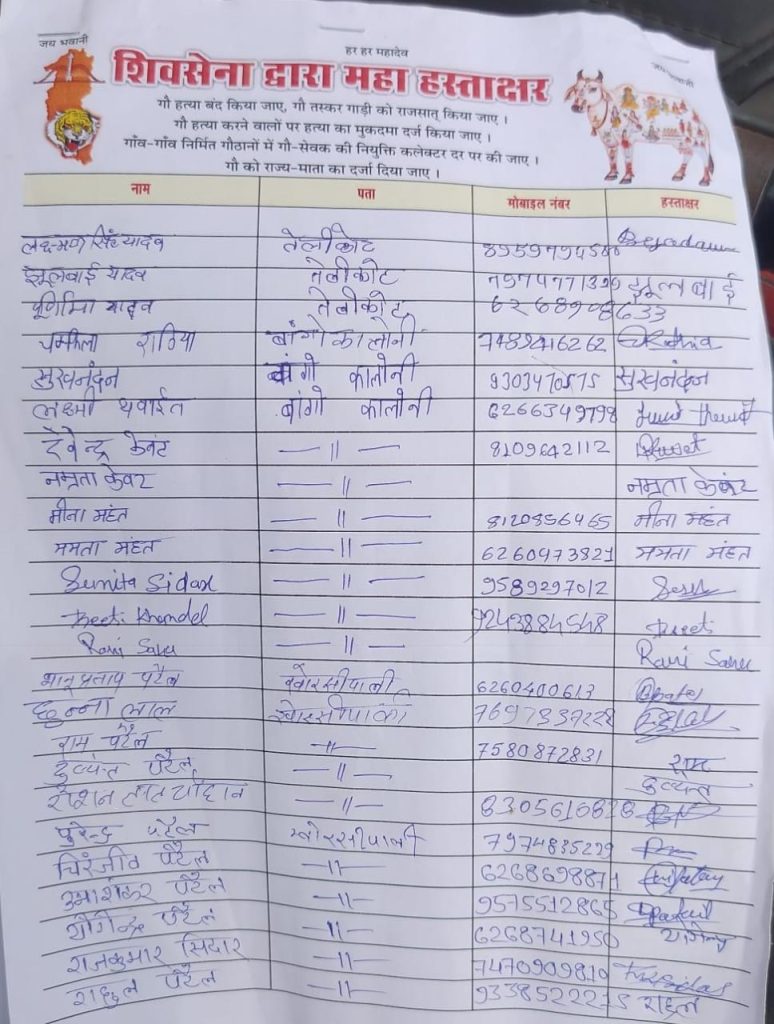 जय भवानी
हर हर महादेव
जय भवानी
शिवसेना द्वारा महा हस्ताक्षर
गौ हत्या बंद किया जाए, गौ तस्कर गाड़ी को राजसात् किया जाए ।
गौ हत्या करने वालों पर हत्या का मुकदमा दर्ज किया जाए ।
गाँव-गाँव निर्मित गौठानों में गौ-सेवक की नियुक्ति कलेक्टर दर पर की जाए ।
गौ को राज्य-माता का दर्जा दिया जाए ।
नाम पता मोबाइल नंबर हस्ताक्षर
लक्ष्मण सिंह यादव तेलीकोट
झूलबाई यादव तेलीकोट झूल बाई
पूर्णिमा यादव तेलीकोट
राठिया बांगो कालोनी 7489416262
सुखनंदन बांगो कालोनी 9303470575 सुखनंदन
लक्ष्मी थवाईत बांगो कालोनी 6266349798
देवेन्द्र केवंट — 11 — 8109642112
नम्रता केवट — 11 — नम्रता केवंट
मीना महंत — 11 — 8120856465 मीना महंत
ममता महंत — 11 — 6260473821 ममता महंत
Sunita Sidar — 11 — 9589297012
Preeti Khandel — 11 — 9243884548 Preeti
Ravi Sahu — 11 — Ravi Sahu
भानुप्रताप पटैल खोरसीपाली 6260400613
छुन्ना लाल खोरसीपाली
राम पटैल — 11 — 7580872831 राम
दुष्यंत पटैल — 11 — दुष्यंत
रोशन लाल चौहान — 11 —
पुरेन्द्र पटैल खोरसीपाली 7974835299
चिरंजीव पटैल — 11 —
उमाशंकर पटैल — 11 — 9575512865
योगेन्द्र पटैल — 11 — 6268741950 योगेन्द्र
राजकुमार सिदार — 11 — 7470909810
राहुल पटैल — 11 — राहुल